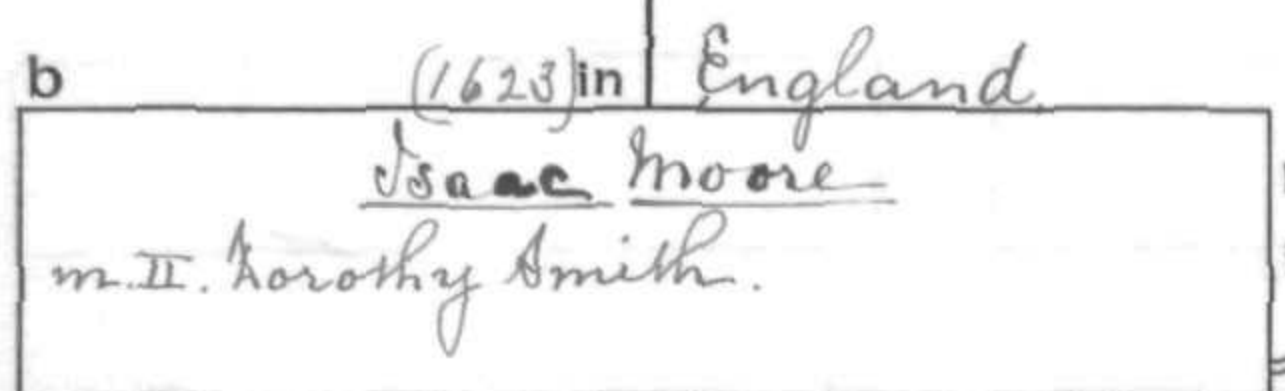 b (1623) in England
Isaac Moore
m. II. Dorothy Smith.